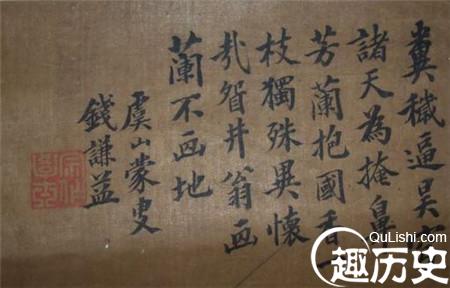 糞穢逼昊
諸天為掩鼻
芳蘭抱國香一
枝獨殊異懷
哉眢井翁画
蘭不画地
虞山蒙叟
錢謙益
QuLishi.com
趣历史